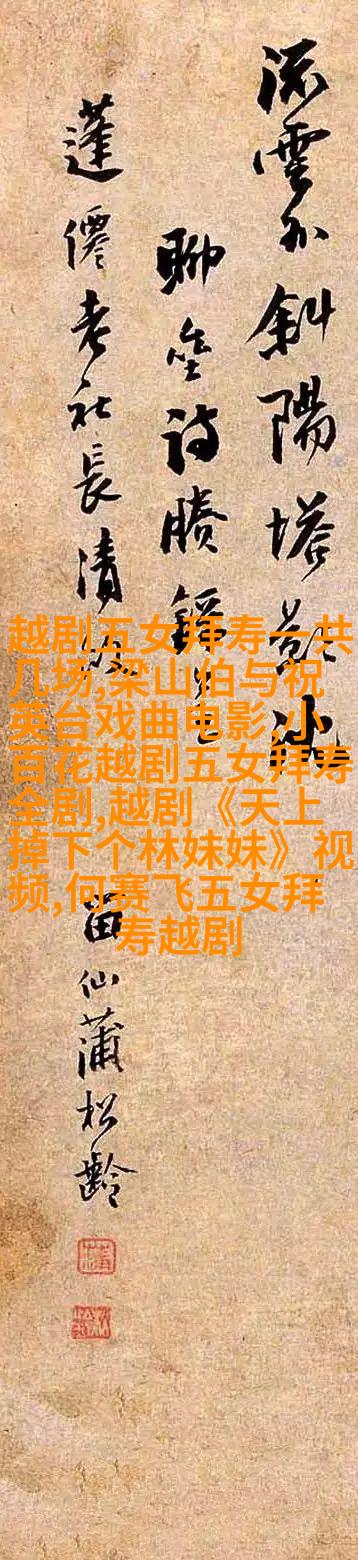 雲外斜陽塔影
聊詩賸
蓬僊老社長清
留仙蒲松齡
越剧五女拜寿一共
几场,梁山伯与祝
英台戏曲电影,小
百花越剧五女拜寿
全剧,越剧《天上
掉下个林妹妹》视
频,何赛飞五女拜
寿越剧